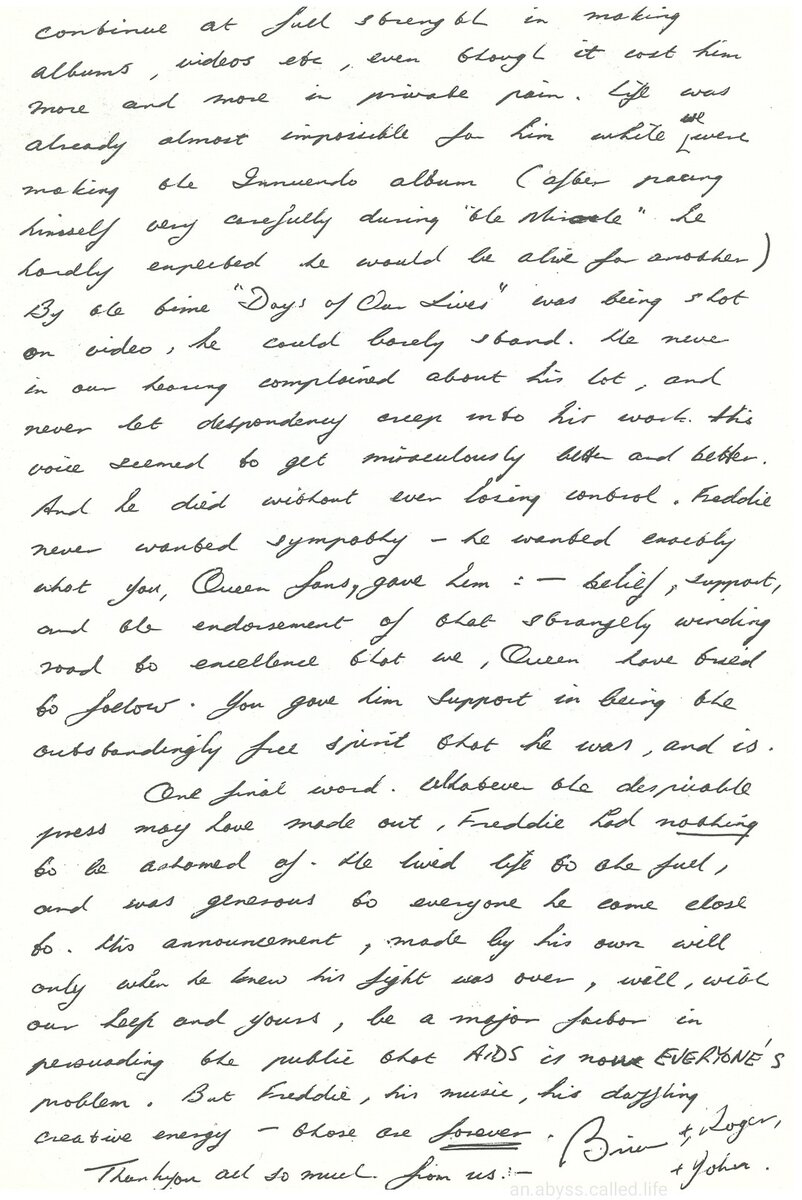 continue at full strength in making
albums, videos etc, even though it cost him
more and more in private pain. Life was
already almost impossible for him while we were
making the Innuendo album (after pacing
himself very carefully during "the Miracle" he
hardly expected he would be alive for another)
By the time "Days of Our Lives" was being shot
on video, he could barely stand. He never
in our hearing complained about his lot, and
never let despondency creep into his work. His
voice seemed to get miraculously better and better.
And he died without ever losing control. Freddie
never wanted sympathy - he wanted exactly
what you, Queen fans, gave him :- belief, support,
and the endorsement of that strangely winding
road to excellence that we, Queen have tried
to follow. You gave him support in being the
outstandingly free spirit that he was, and is.
One final word. Whatever the despicable
press may have made out, Freddie had nothing
to be ashamed of. He lived life to the full,
and was generous to everyone he came close
to. His announcement, made by his own will
only when he knew his fight was over, will, with
our help and yours, be a major factor in
persuading the public that AIDS is now EVERYONE'S
problem. But Freddie, his music, his dazzling
creative energy - those are forever.
Thankyou all so much. from us :- Brian +, Roger,
+ John.
an.abyss.called.life